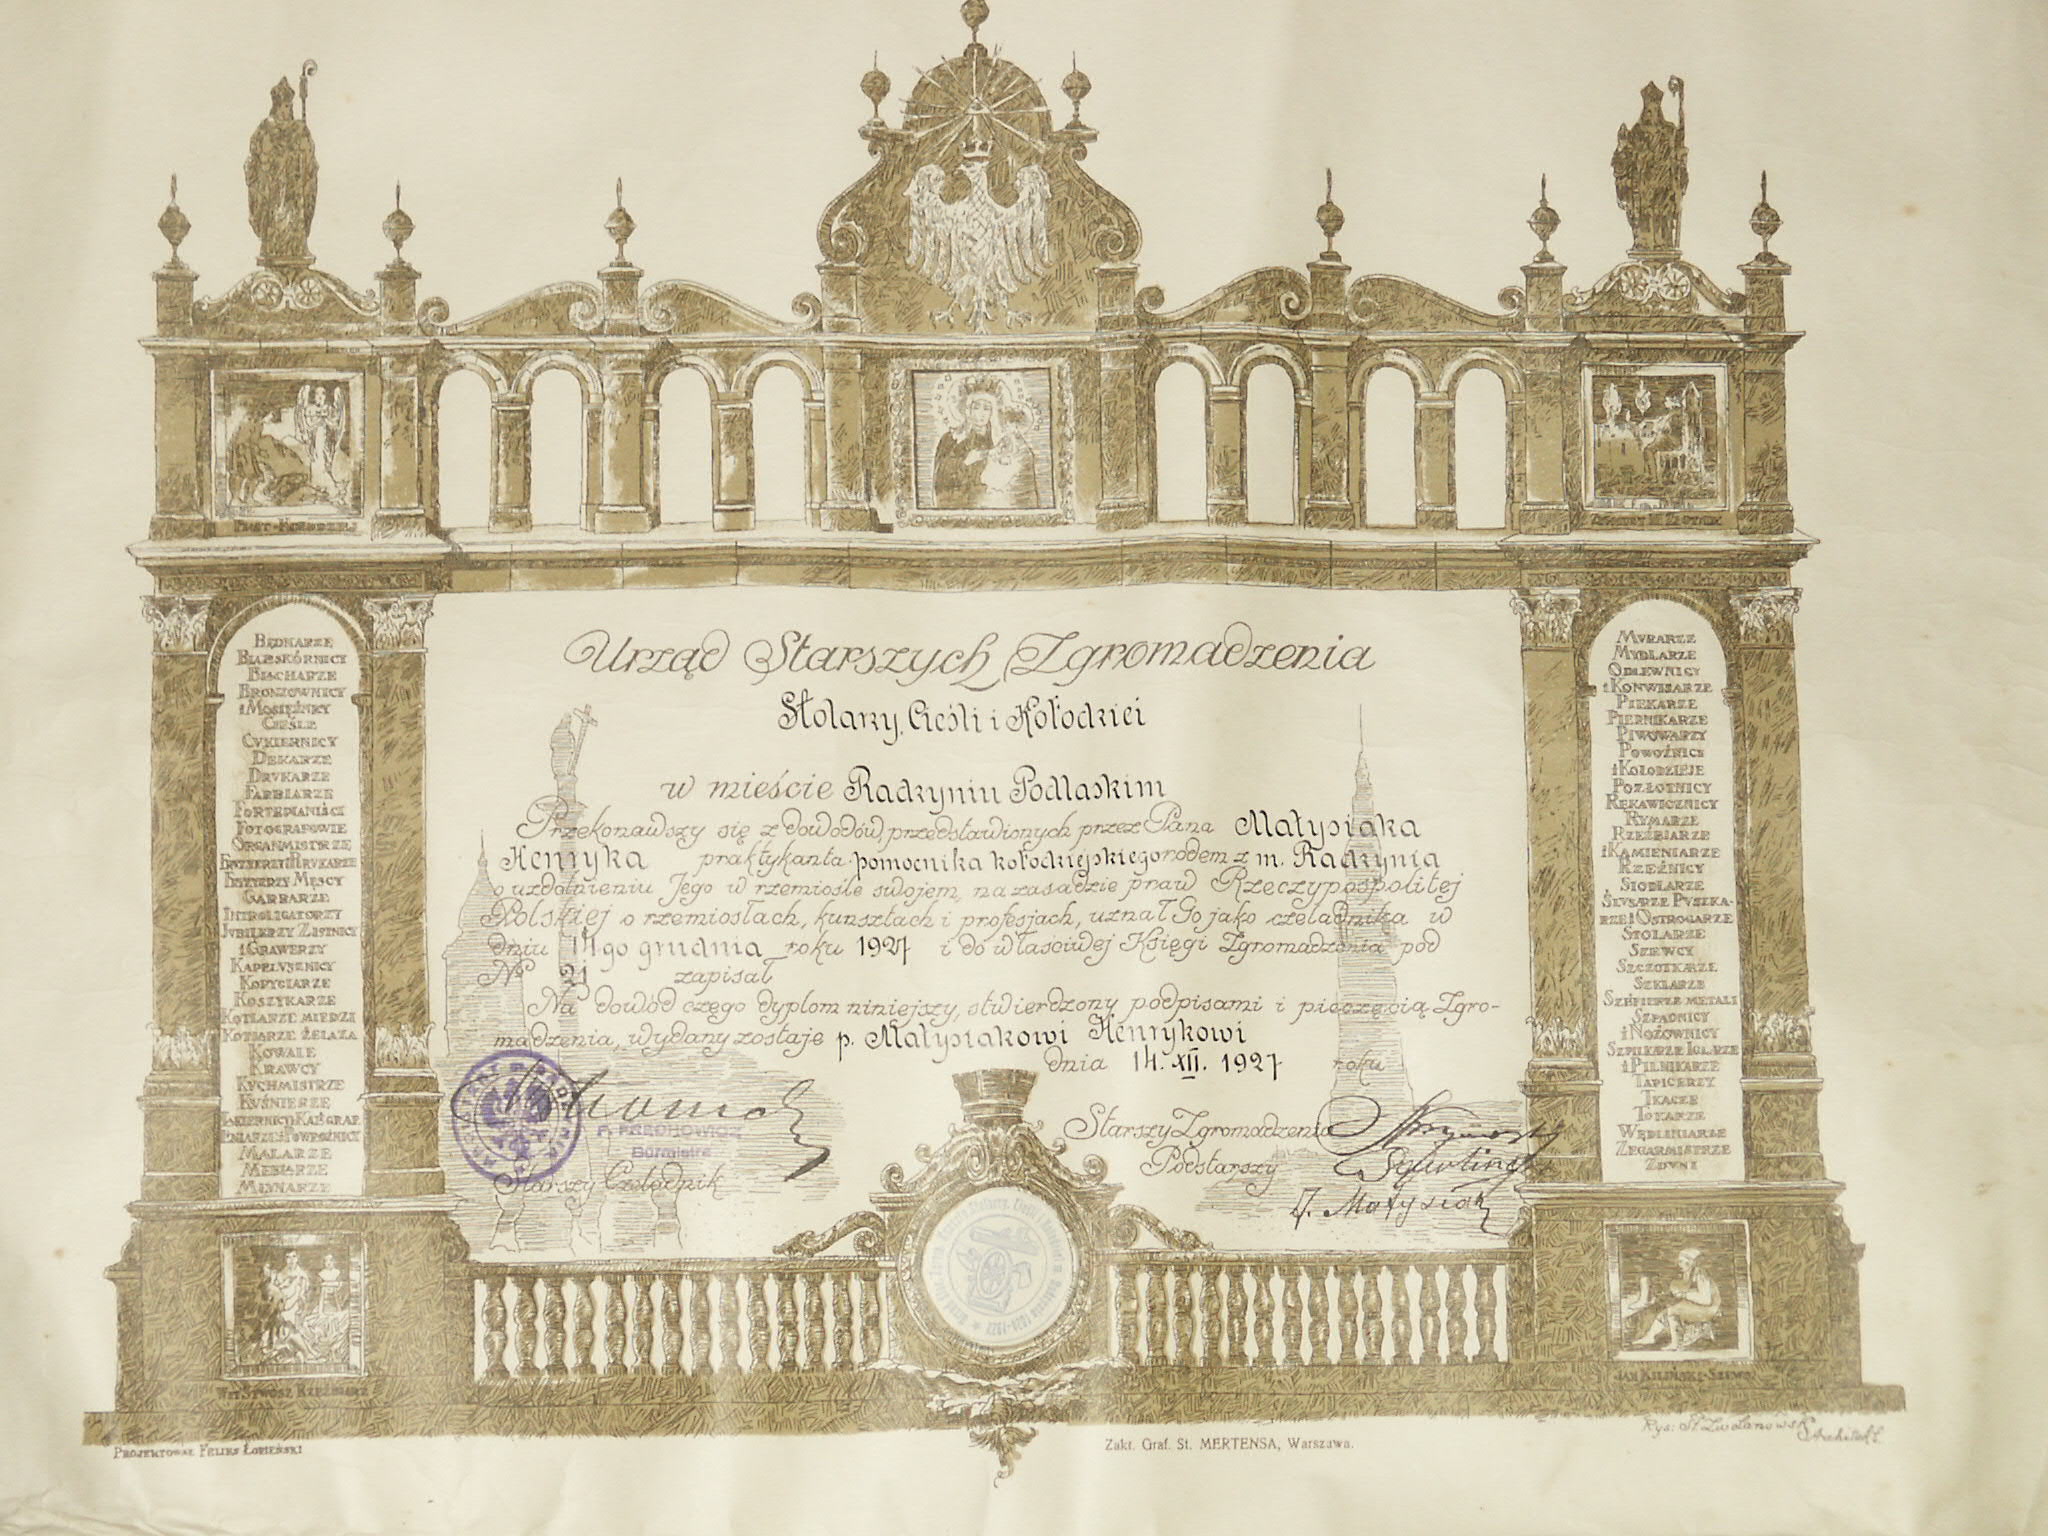 PIAST-KOŁODZIEJ
BĘDNARZE
BIAŁOSKÓRNICY
BLACHARZE
BRONZOWNICY
i MOSIĘŻNICY
CIEŚLE
CUKIERNICY
DEKARZE
DRUKARZE
FARBIARZE
FORTEPIANIŚCI
FOTOGRAFOWIE
ORGANMISTRZE
FRYZJERZY MĘSCY
GARBARZE
INTROLIGATORZY
JUBILERZY ZŁOTNICY
i GRAWERZY
KAPELUSZNICY
KOPYCIARZE
KOSZYKARZE
KOTLARZE MIEDZI
KOTLARZE ŻELAZA
KOWALE
KRAWCY
KUCHMISTRZE
KUŚNIERZE
MALARZE
MEBLARZE
MŁYNARZE
WIT STWOSZ RZEŹBIARZ
Urząd Starszych Zgromadzenia
Stolarzy, Cieśli i Kołodziei
w mieście Radzyniu Podlaskim
Przekonawszy się z dowodów, przedstawionych przez Pana Małysiaka
Henryka praktykanta pomocnika kołodziejskiego rodem z m. Radzynia
o uzdolnieniu Jego w rzemiośle swojem, na zasadzie praw Rzeczypospolitej
Polskiej o rzemiosłach, kunsztach i profesjach, uznał Go jako czeladnika w
dniu 14go grudnia roku 1927 i do właściwej Księgi Zgromadzenia pod
№ 21 zapisał
Na dowód czego dyplom niniejszy, stwierdzony podpisami i pieczęcią Zgro-
madzenia, wydany zostaje p. Małysiakowi Henrykowi
dnia 14. XII. 1927 roku
Burmistrz
Starszy Czeladnik
Starszy Zgromadzenia
Podstarszy
J. Małysiak
MURARZE
MYDLARZE
ODLEWNICY
i KONWISARZE
PIEKARZE
PIERNIKARZE
PIWOWARZY
POWOŹNICY
i KOŁODZIEJE
POZŁOTNICY
RĘKAWICZNICY
RYMARZE
RZEŹBIARZE
i KAMIENIARZE
RZEŹNICY
SIODLARZE
ŚLUSARZE PUSZKA-
RZE i OSTROGARZE
STOLARZE
SZEWCY
SZCZOTKARZE
SZKLARZE
SZLIFIERZE METALI
SZPADNICY
i NOŻOWNICY
SZPILKARZE IGLARZE
i PILNIKARZE
TAPICERZY
TKACZE
TOKARZE
WĘDLINIARZE
ZEGARMISTRZE
ZDUNI
JAN KILIŃSKI-SZEWC
PROJEKTOWAŁ FELIKS ŁOPIEŃSKI
Zakł. Graf. St. MERTENSA, Warszawa.
Rys: St. Zwolanowski
Architekt.